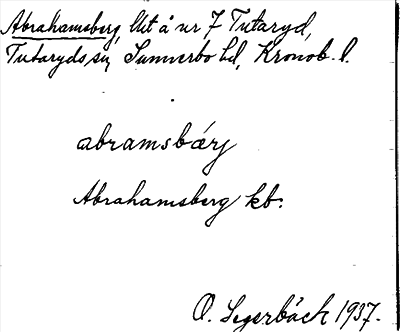 Abrahamsberg, lht å nr 7 Tutaryd,
Tutaryds sn, Sunnerbo hd, Kronob. l.
abramsbärj
Abrahamsberg kb.
O. Segerbäck 1937.